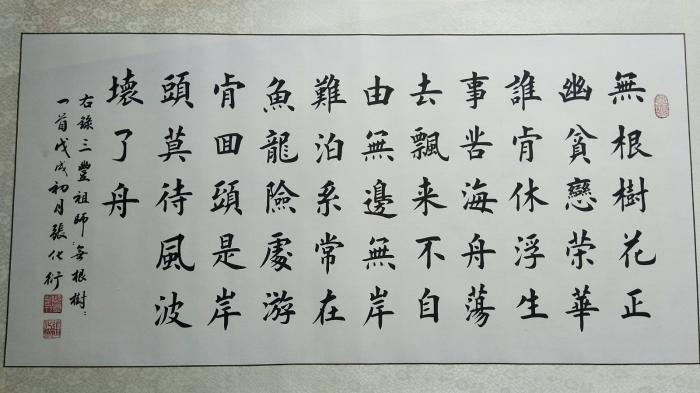 無根樹花正
幽貧戀荣華
誰肯休浮生
事苦海舟蕩
去飄来不自
由無邊無岸
難泊系常在
魚龍險處游
肯回頭是岸
頭莫待風波
壞了舟
右錄三豐祖師無根樹
一首戊戌初月張化衍